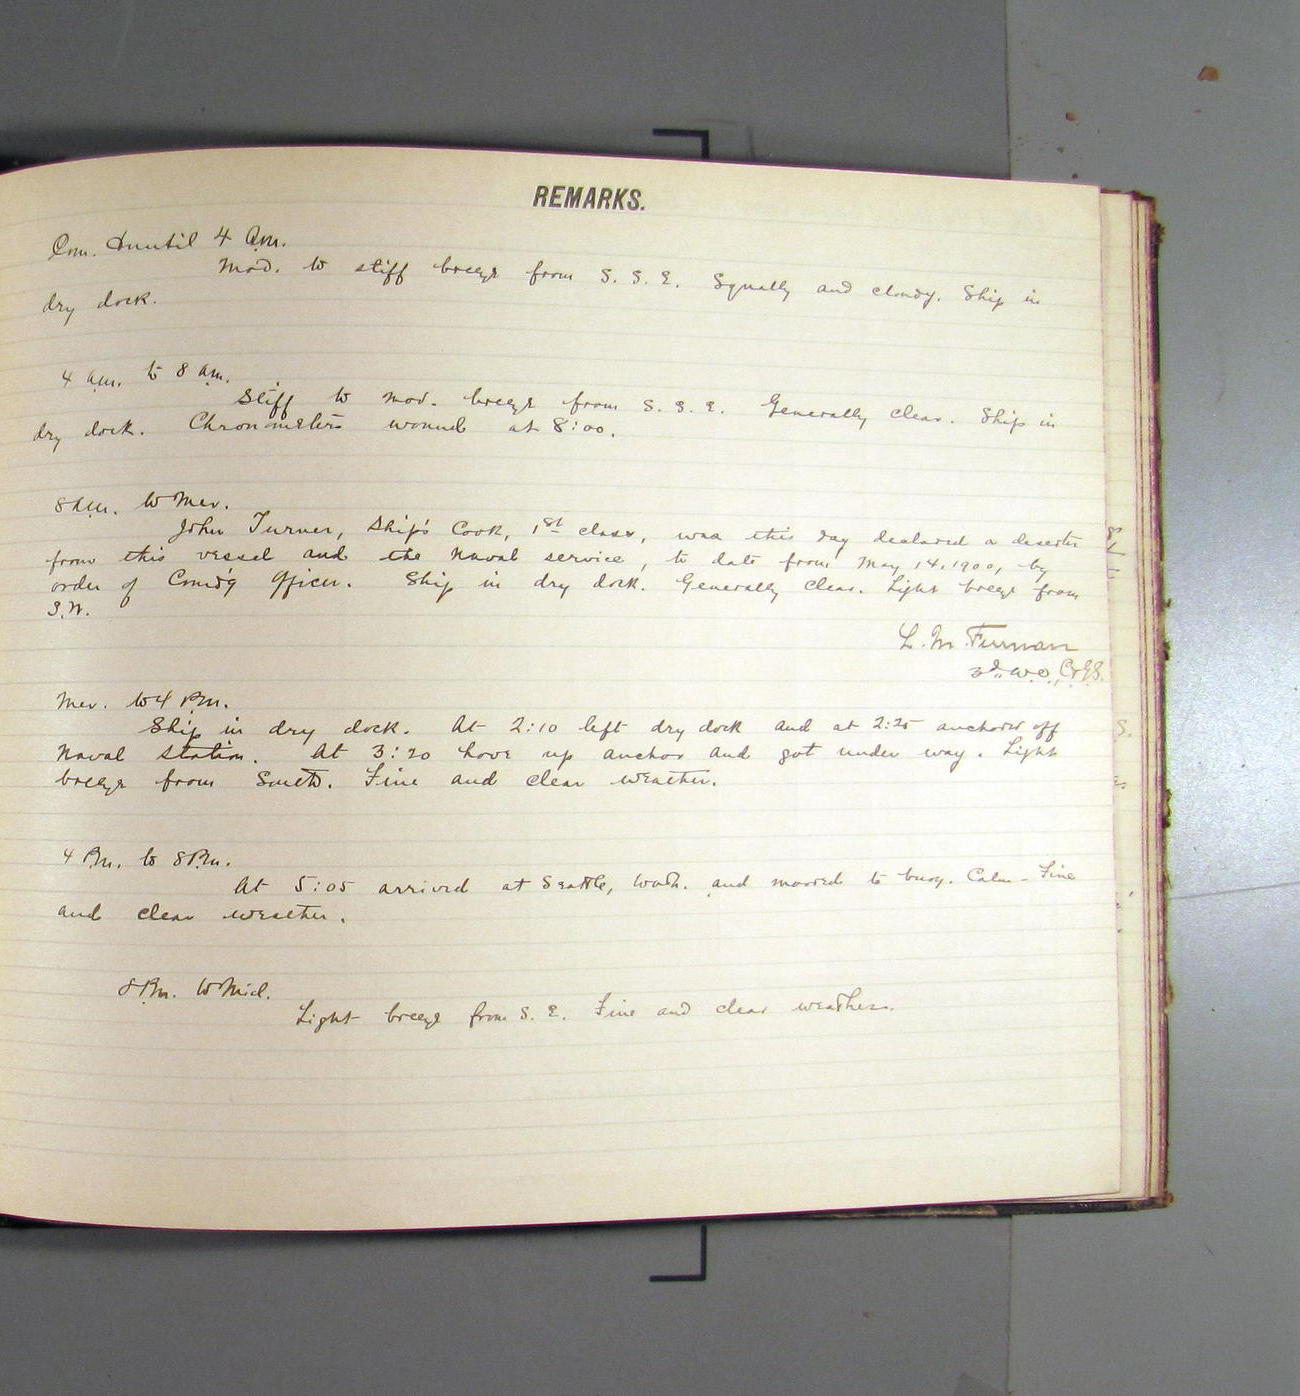 REMARKS.
Com. & until 4 a.m.
Mod. to stiff breeze from S. S. E. Squally and cloudy. Ship in
dry dock.
4 a.m. to 8 a.m.
Stiff to mod. breeze from S. S. E. Generally clear. Ship in
dry dock. Chronometers wound at 8:00.
8 a.m. to Mer.
John Turner, Ship's Cook, 1st class, was this day declared a deserter
from this vessel and the Naval service, to date from May 14, 1900, by
order of Comd'g Officer. Ship in dry dock. Generally clear. Light breeze from
S.W.
L. M. Furman
3d W.O., C&GS.
Mer. to 4 P.m.
Ship in dry dock. At 2:10 left dry dock and at 2:25 anchored off
Naval station. At 3:20 hove up anchor and got under way. Light
breeze from South. Fine and clear weather.
4 P.m. to 8 P.m.
At 5:05 arrived at Seattle, Wash. and moored to buoy. Calm - Fine
and clear weather.
8 P.m. to Mid.
Light breeze from S. E. Fine and clear weather.